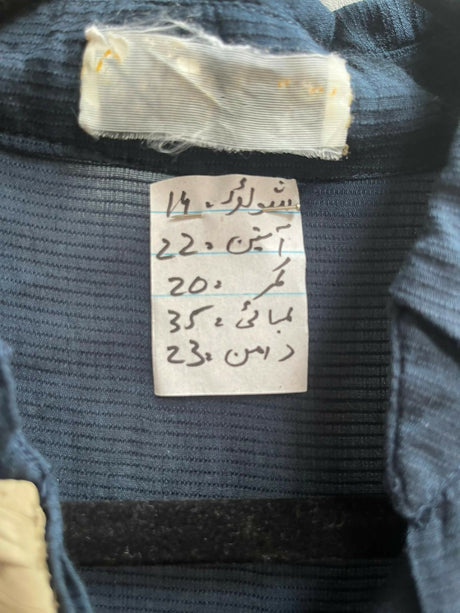 شولڈر . 14
آستین . 22
کمر . 20
لمبائی . 35
دامن . 23